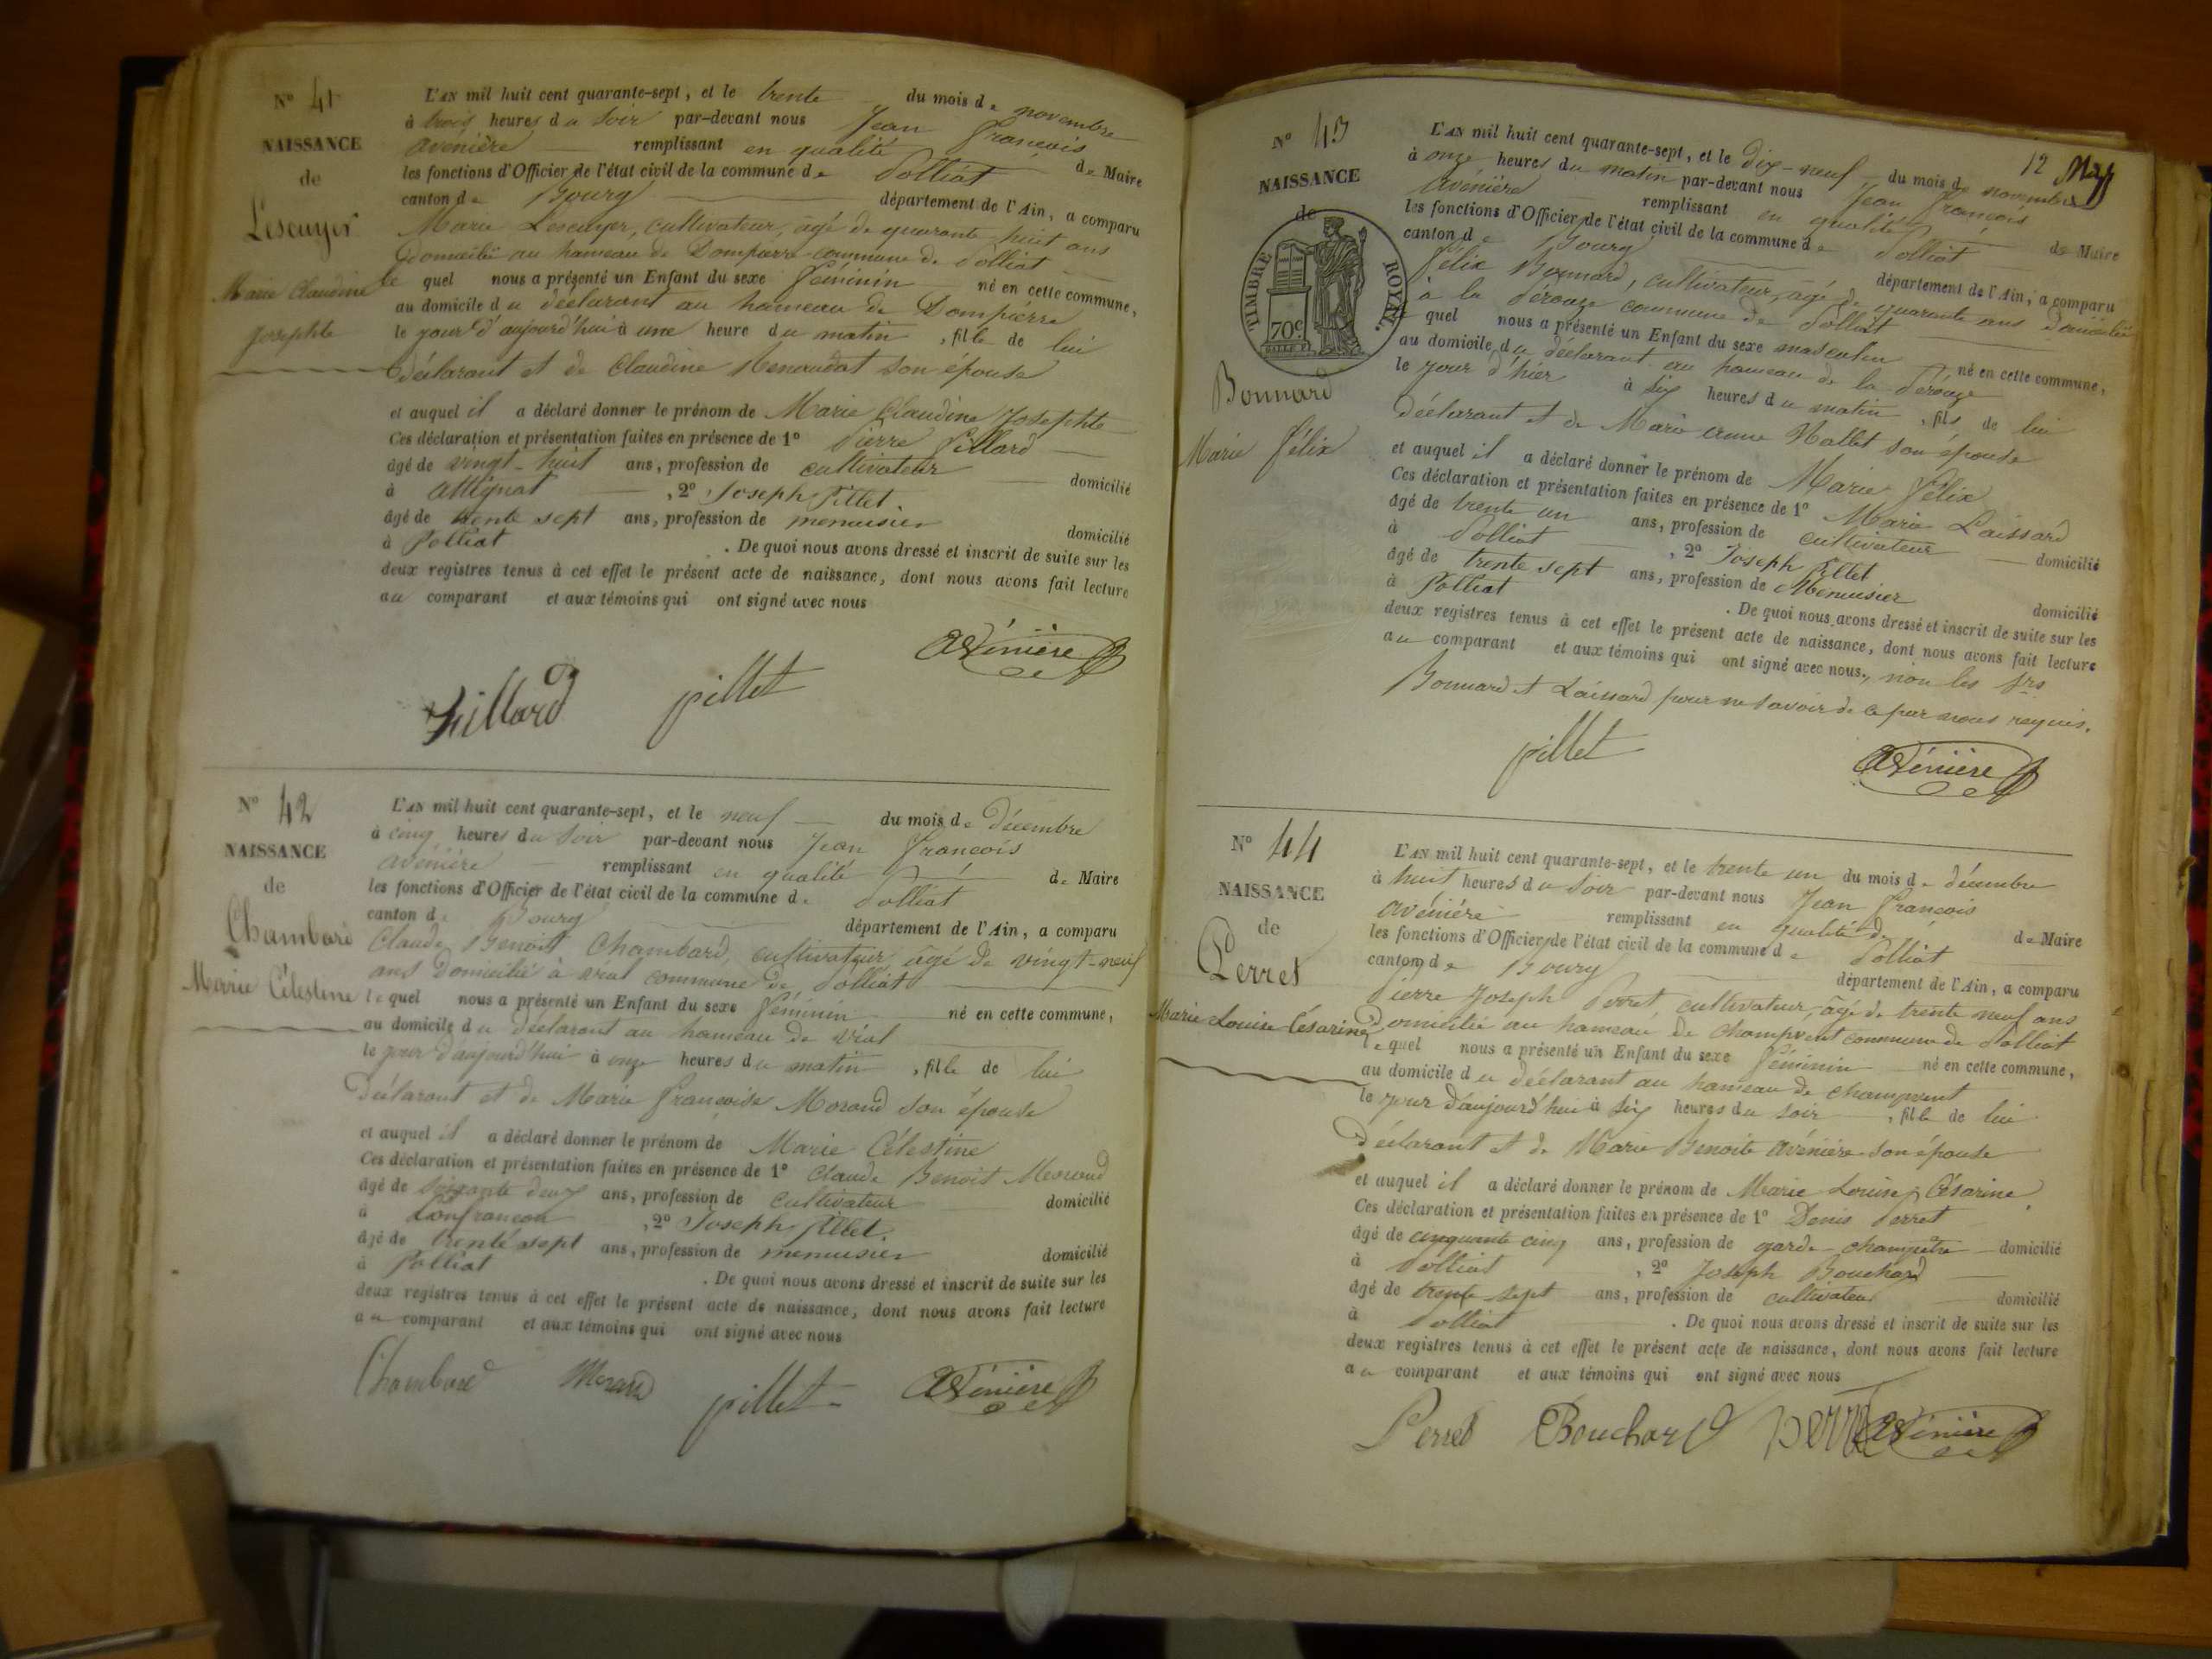 N° 41
NAISSANCE
de
Lescuyer
Marie Claudine
Josephte
L'AN mil huit cent quarante-sept, et le trente du mois de novembre
à trois heures du soir par-devant nous Jean François
avénière remplissant en qualité de Maire
les fonctions d'Officier de l'état civil de la commune de Polliat
canton de Bourg département de l'Ain, a comparu
Marie Lescuyer, cultivateur, agé de quarante huit ans
Domicilié au hameau de Dompierre commune de Polliat
le quel nous a présenté un Enfant du sexe féminin né en cette commune,
au domicile du déclarant au hameau de Dompierre
le jour d'aujourd'hui à une heure du matin, fille de lui
déclarant et de Claudine son épouse
et auquel il a déclaré donner le prénom de Marie Claudine Josephte
Ces déclaration et présentation faites en présence de 1° Pierre Pillard
âgé de vingt-huit ans, profession de cultivateur domicilié
à attignat, 2° Joseph Pillet.
âgé de trente sept ans, profession de menuisier domicilié
à Polliat. De quoi nous avons dressé et inscrit de suite sur les
deux registres tenus à cet effet le présent acte de naissance, dont nous avons fait lecture
au comparant et aux témoins qui ont signé avec nous
Avénière
pillard pillet
N° 42
NAISSANCE
de
Chambard
Marie Célestine
L'AN mil huit cent quarante-sept, et le neuf du mois de décembre
à cinq heures du soir par-devant nous Jean François
avénière remplissant en qualité de Maire
les fonctions d'Officier de l'état civil de la commune de Polliat
canton de Bourg département de l'Ain, a comparu
Claude Benoit Chambard, cultivateur, agé de vingt-neuf
ans Domicilié à vial commune de Polliat
le quel nous a présenté un Enfant du sexe féminin né en cette commune,
au domicile du déclarant au hameau de vial
le jour d'aujourd'hui à onze heures du matin, fille de lui
déclarant et de Marie françoise Morand son épouse
et auquel il a déclaré donner le prénom de Marie Célestine
Ces déclaration et présentation faites en présence de 1° Claude Benoit Morand
âgé de soixante deux ans, profession de cultivateur domicilié
à Confrancon, 2° Joseph Pillet.
âgé de trente sept ans, profession de menuisier domicilié
à Polliat. De quoi nous avons dressé et inscrit de suite sur les
deux registres tenus à cet effet le présent acte de naissance, dont nous avons fait lecture
au comparant et aux témoins qui ont signé avec nous
Chambard Morand pillet Avénière
12
N° 43
NAISSANCE
de
TIMBRE ROYAL.
70c
Bonnard
Marie Félix
L'AN mil huit cent quarante-sept, et le dix-neuf du mois de novembre
à onze heures du matin par-devant nous Jean François
avénière remplissant en qualité de Maire
les fonctions d'Officier de l'état civil de la commune de Polliat
canton de Bourg département de l'Ain, a comparu
Félix Bonnard, cultivateur, agé de quarante ans Domicilié
à la Pérouze commune de Polliat
quel nous a présenté un Enfant du sexe masculin né en cette commune,
au domicile du déclarant au hameau de la Pérouze
le jour d'hier à six heures du matin, fils de lui
déclarant et de Marie anne son épouse
et auquel il a déclaré donner le prénom de Marie Félix
Ces déclaration et présentation faites en présence de 1° Marie Laissard
âgé de trente un ans, profession de cultivateur domicilié
à Polliat, 2° Joseph Pillet
âgé de trente sept ans, profession de Menuisier domicilié
à Polliat. De quoi nous avons dressé et inscrit de suite sur les
deux registres tenus à cet effet le présent acte de naissance, dont nous avons fait lecture
au comparant et aux témoins qui ont signé avec nous, non les srs
Bonnard et Laissard pour ne savoir de ce par nous requis.
pillet Avénière
N° 44
NAISSANCE
de
Perret
Marie Louise Césarine
L'AN mil huit cent quarante-sept, et le trente un du mois de décembre
à huit heures du soir par-devant nous Jean François
avénière remplissant en qualité de de Maire
les fonctions d'Officier de l'état civil de la commune de Polliat
canton de Bourg département de l'Ain, a comparu
Pierre Joseph Perret, cultivateur, agé de trente neuf ans
Domicilié au hameau de champvent commune de Polliat
le quel nous a présenté un Enfant du sexe féminin né en cette commune,
au domicile du déclarant au hameau de champvent
le jour d'aujourd'hui à six heures du soir, fille de lui
déclarant et de Marie Benoite avénière son épouse
et auquel il a déclaré donner le prénom de Marie Louise Césarine
Ces déclaration et présentation faites en présence de 1° Denis Perret
âgé de cinquante cinq ans, profession de garde-champêtre domicilié
à Polliat, 2° Joseph Bouchard
âgé de trente sept ans, profession de cultivateur domicilié
à Polliat. De quoi nous avons dressé et inscrit de suite sur les
deux registres tenus à cet effet le présent acte de naissance, dont nous avons fait lecture
au comparant et aux témoins qui ont signé avec nous
Perret Bouchard perret Avénière